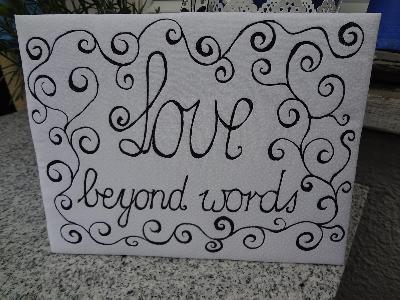 Love
beyond words